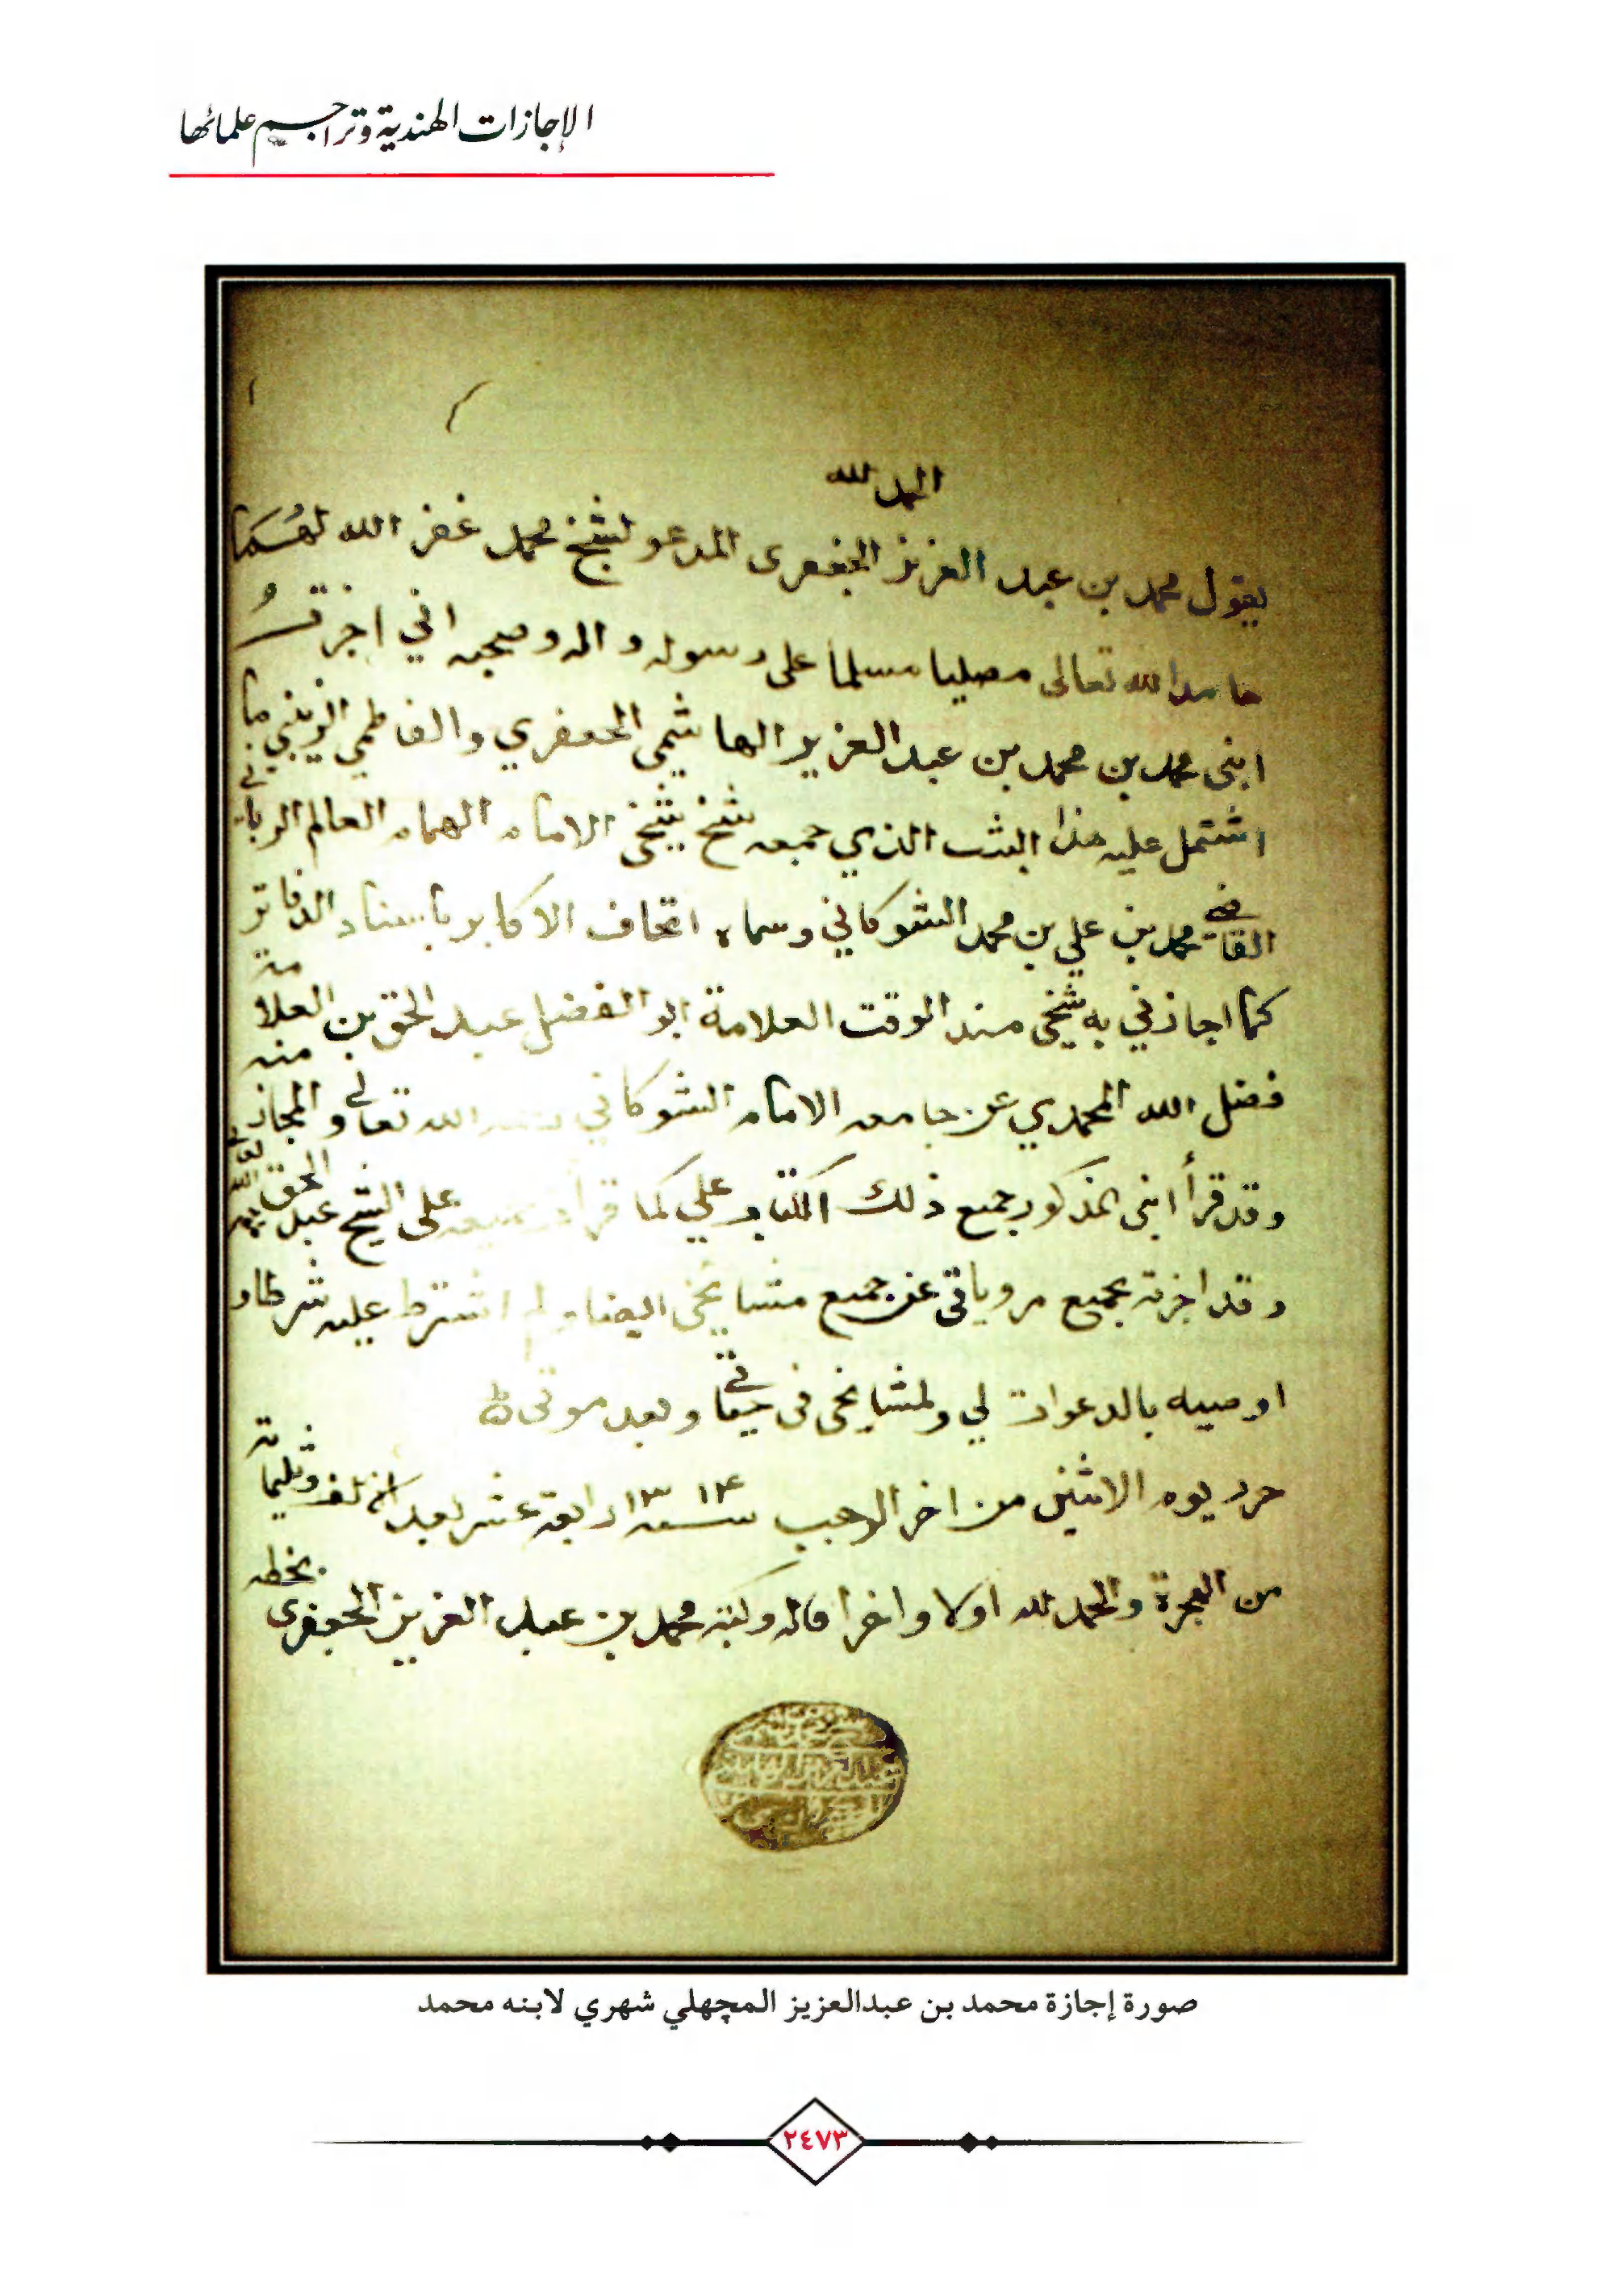 الإجازات الهندية وتراجم علمائها
الحمد لله
يقول محمد بن عبد العزيز الجعفرى المدعو لشيخ محمد غفر الله لهما
حامدا لله تعالى مصليا مسلما على رسوله واله وصحبه اني اجزت
ابنى محمد بن محمد بن عبد العزيز الهاشمي الجعفري والفاطمي الزينبي بما
اشتمل عليه هذا الثبت الذي جمعه شيخ شيخي الامام الهمام العالم الرباني
القاضي محمد بن علي بن محمد الشوكاني وسماه اتحاف الاكابر باسناد الدفاتر
كما اجازني به شيخي مسند الوقت العلامة ابو الفضل عبد الحق بن العلامة
فضل الله المحمدي عن جامعه الامام الشوكاني الله تعالى والمجاز منه
وقد قرأ ابنى المذكور جميع ذلك الكتاب علي كما قرأت على الشيخ عبد الحق
وقد اجزته بجميع مروياتي عن جميع مشايخي ايضا ولم اشترط عليه شرطا و
اوصيه بالدعوات لي ولمشايخي فى حياتي وبعد موتى
حرر يوم الاثنين من اخر الرجب سنة ١٣١۴ رابعة عشر بعد الف وثلثمائة
من الهجرة والحمد لله اولا واخرا قاله وكتبه محمد بن عبد العزيز الجعفرى بخطه
صورة إجازة محمد بن عبدالعزيز المچهلي شهري لابنه محمد
٢٤٧٣